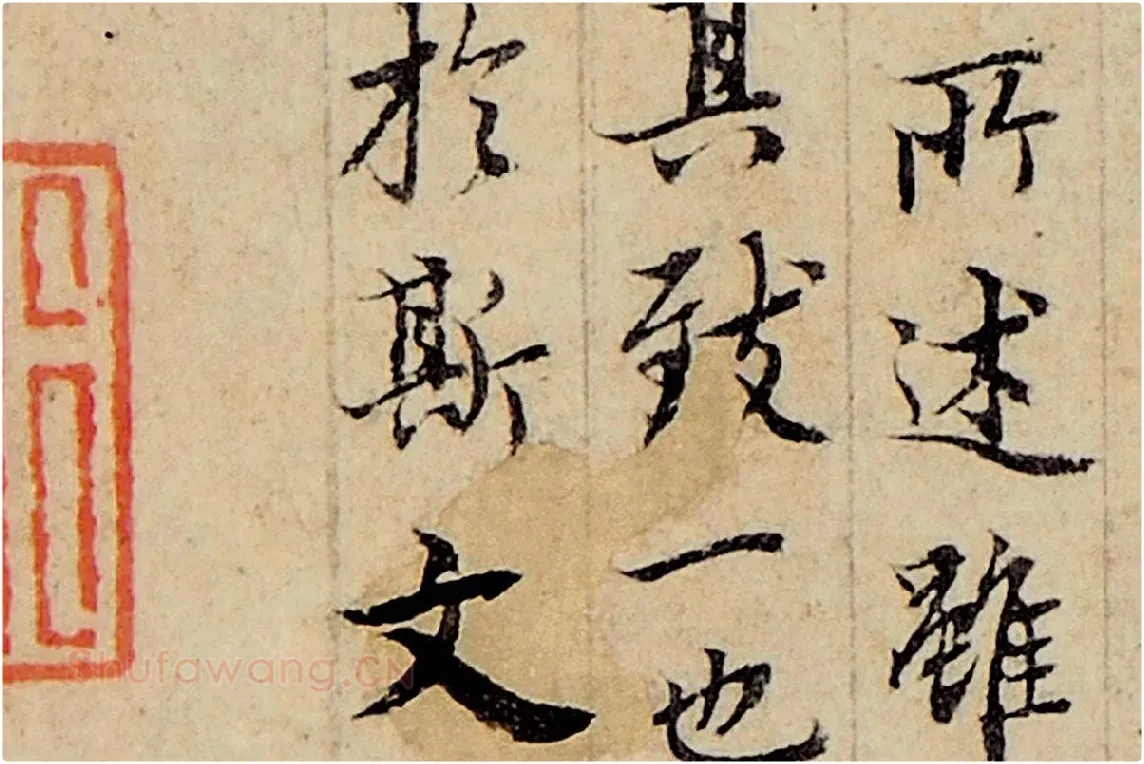 所述雖
其致一也
於斯文
Shufawang.CN